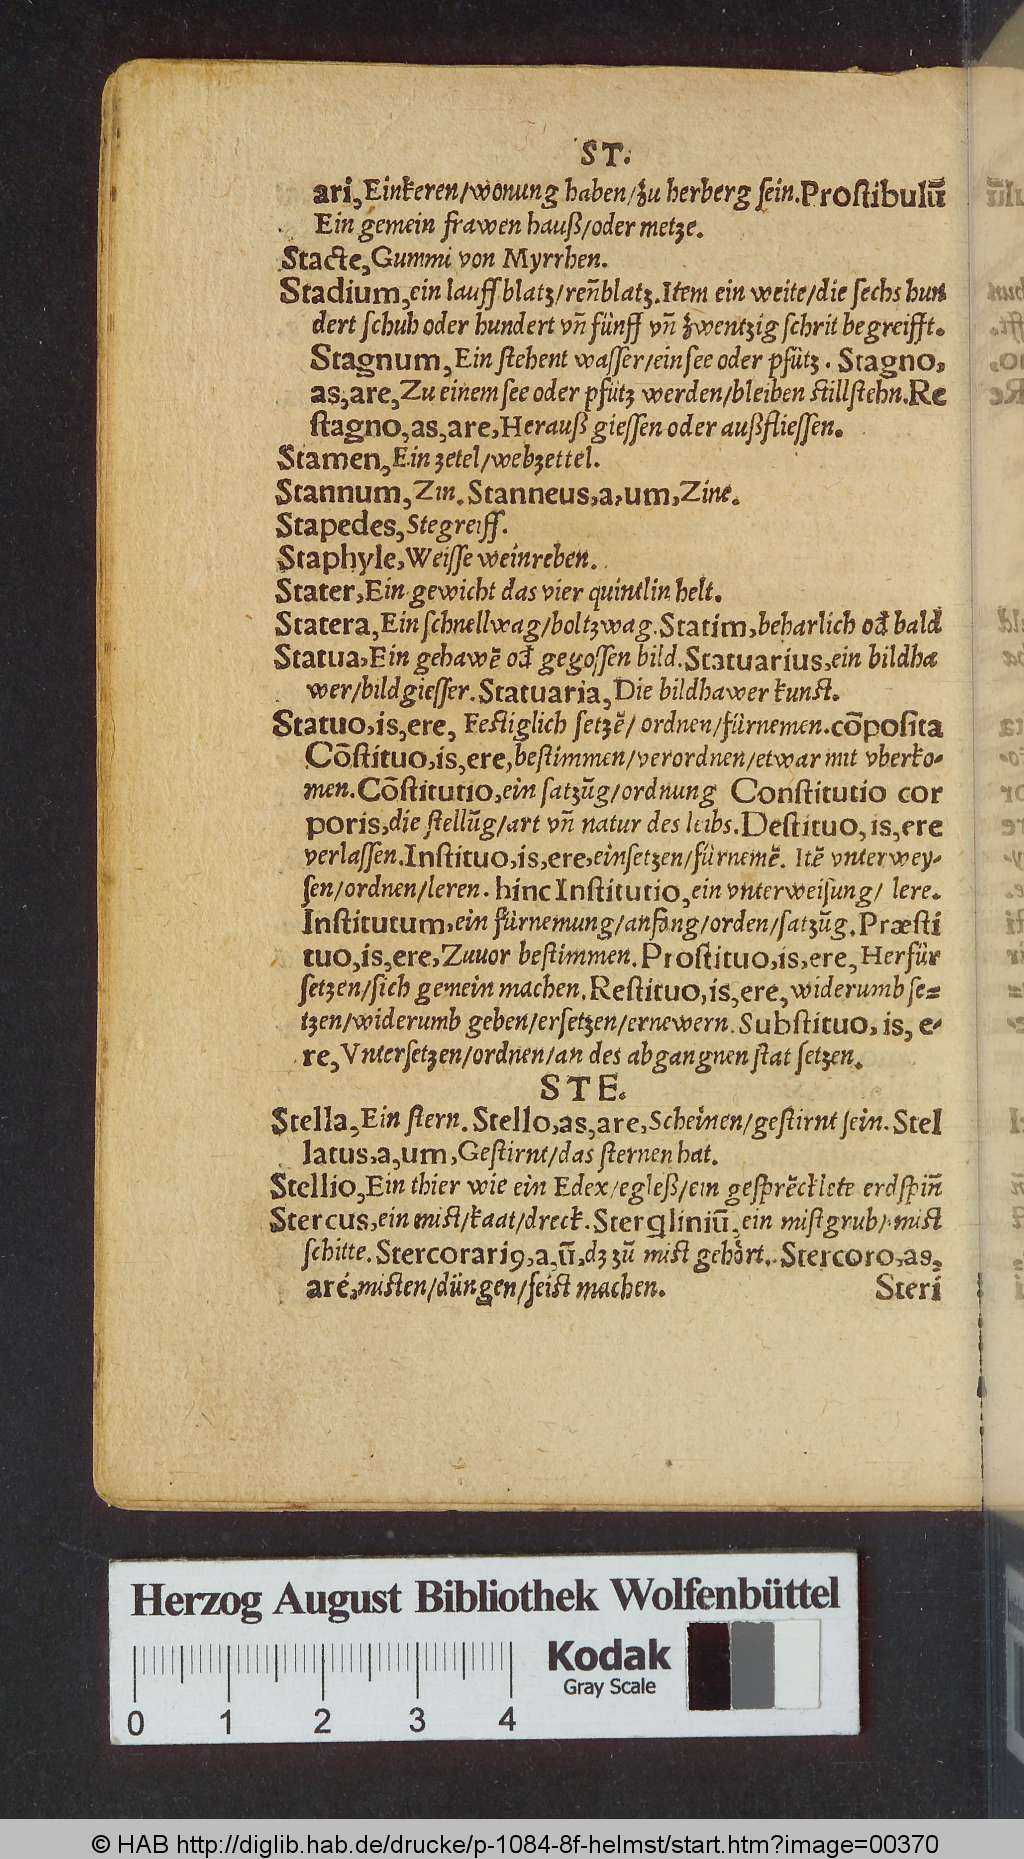 ST.
ari, Einkeren/wonung haben/zu herberg ſein. Proſtibulū
Ein gemein frawen hauß/oder metze.
Stacte, Gummi von Myrrhen.
Stadium, ein lauffblatz/reñblatz. Item ein weite/die ſechs hun
dert ſchuh oder hundert vñ fünff vñ zwentzig ſchrit begreifft.
Stagnum, Ein ſtehent waſſer/ein ſee oder pfütz. Stagno,
as, are, Zu einem ſee oder pfütz werden/bleiben ſtillſtehn. Re
ſtagno, as, are, Herauß gieſſen oder außflieſſen.
Stamen, Ein zetel/webzettel.
Stannum, Zin. Stanneus, a, um, Zine.
Stapedes, Stegreiff.
Staphyle, Weiſſe weinreben.
Stater, Ein gewicht das vier quintlin helt.
Statera, Ein ſchnellwag/boltzwag. Statim, beharlich oď bald
Statua, Ein gehawē oď gegoſſen bild. Statuarius, ein bildha
wer/bildgieſſer. Statuaria, Die bildhawer kunſt.
Statuo, is, ere, Feſtiglich ſetzē/ ordnen/fürnemen. cōpoſita
Cōſtituo, is, ere, beſtimmen/verordnen/etwar mit vberko-
men. Cōſtitutio, ein ſatzūg/ordnung Conſtitutio cor
poris, die ſtellūg/art vñ natur des leibs. Deſtituo, is, ere
verlaſſen. Inſtituo, is, ere, einſetzen/fürnemē. Itē vnterwey-
ſen/ordnen/leren. hinc Inſtitutio, ein vnterweiſung/ lere.
Inſtitutum, ein fürnemung/anfang/orden/ſatzūg. Præſti
tuo, is, ere, Zuuor beſtimmen. Proſtituo, is, ere, Herfür
ſetzen/ſich gemein machen. Reſtituo, is, ere, widerumb ſe=
tzen/widerumb geben/erſetzen/ernewern. Subſtituo, is, e-
re, Vnterſetzen/ordnen/an des abgangnen ſtat ſetzen.
STE.
Stella, Ein ſtern. Stello, as, are, Scheinen/geſtirnt ſein. Stel
latus, a, um, Geſtirnt/das ſternen hat.
Stellio, Ein thier wie ein Edex/egleß/ein geſprēcklete erdſpiñ
Stercus, ein miſt/kaat/dreck. Sterqliniū, ein miſtgrub/miſt
ſchitte. Stercorariꝰ, a, ū, dz zū miſt gehört. Stercoro, as,
are, miſten/düngen/feiſt machen. Steri
Herzog August Bibliothek Wolfenbüttel
Kodak
Gray Scale
0 1 2 3 4
© HAB http://diglib.hab.de/drucke/p-1084-8f-helmst/start.htm?image=00370